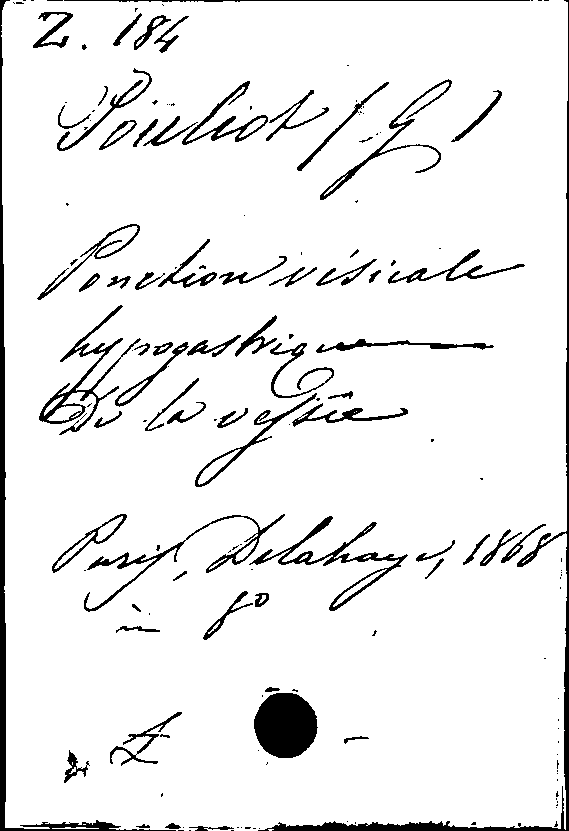 Z. 184
Pouliot (G)
Ponction vésicale
hypogastrique
De la vessie
Paris, Delahaye, 1868
in 8º